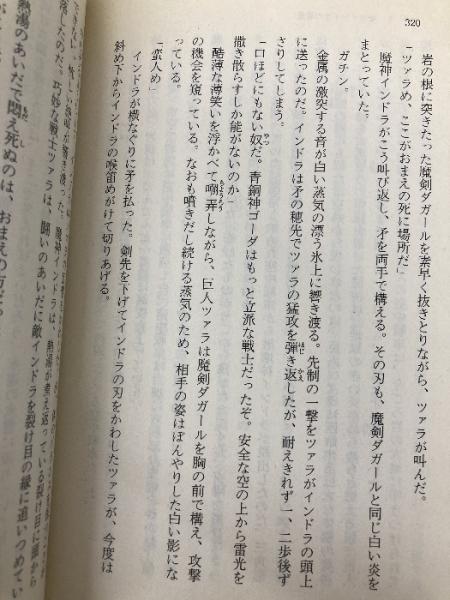 320
岩の根に突きたった魔剣ダガールを素早く抜きとりながら、ツァラが叫んだ。
「ツァラめ、ここがおまえの死に場所だ」
魔神インドラがこう叫び返し、矛を両手で構える。その刃も、魔剣ダガールと同じ白い炎を
まとっていた。
ガチン。
金属の激突する音が白い蒸気の漂う氷上に響き渡る。先制の一撃をツァラがインドラの頭上
に送ったのだ。インドラは矛の穂先でツァラの猛攻を弾き返したが、耐えきれず一、二歩後ず
さりしてしまう。
「口ほどにもない奴だ。青銅神ゴーダはもっと立派な戦士だったぞ。安全な空の上から雷光を
撒き散らすしか能がないのか」
酷薄な薄笑いを浮かべて嘲弄しながら、巨人ツァラは魔剣ダガールを胸の前で構え、攻撃
の機会を窺っている。なおも噴きだし続ける蒸気のため、相手の姿はぼんやりした白い影にな
っている。
「蛮人め」
インドラが横なぐりに矛を払った。剣先を下げてインドラの刃をかわしたツァラが、今度は
斜め下からインドラの喉笛めがけて切りあげる。
落したのだ。巧妙な戦士ツァラは、闘いのあいだに敵インドラを裂け目の縁に追いつめてい
熱湯のあいだで悶え死ぬのは、おまえの方だ